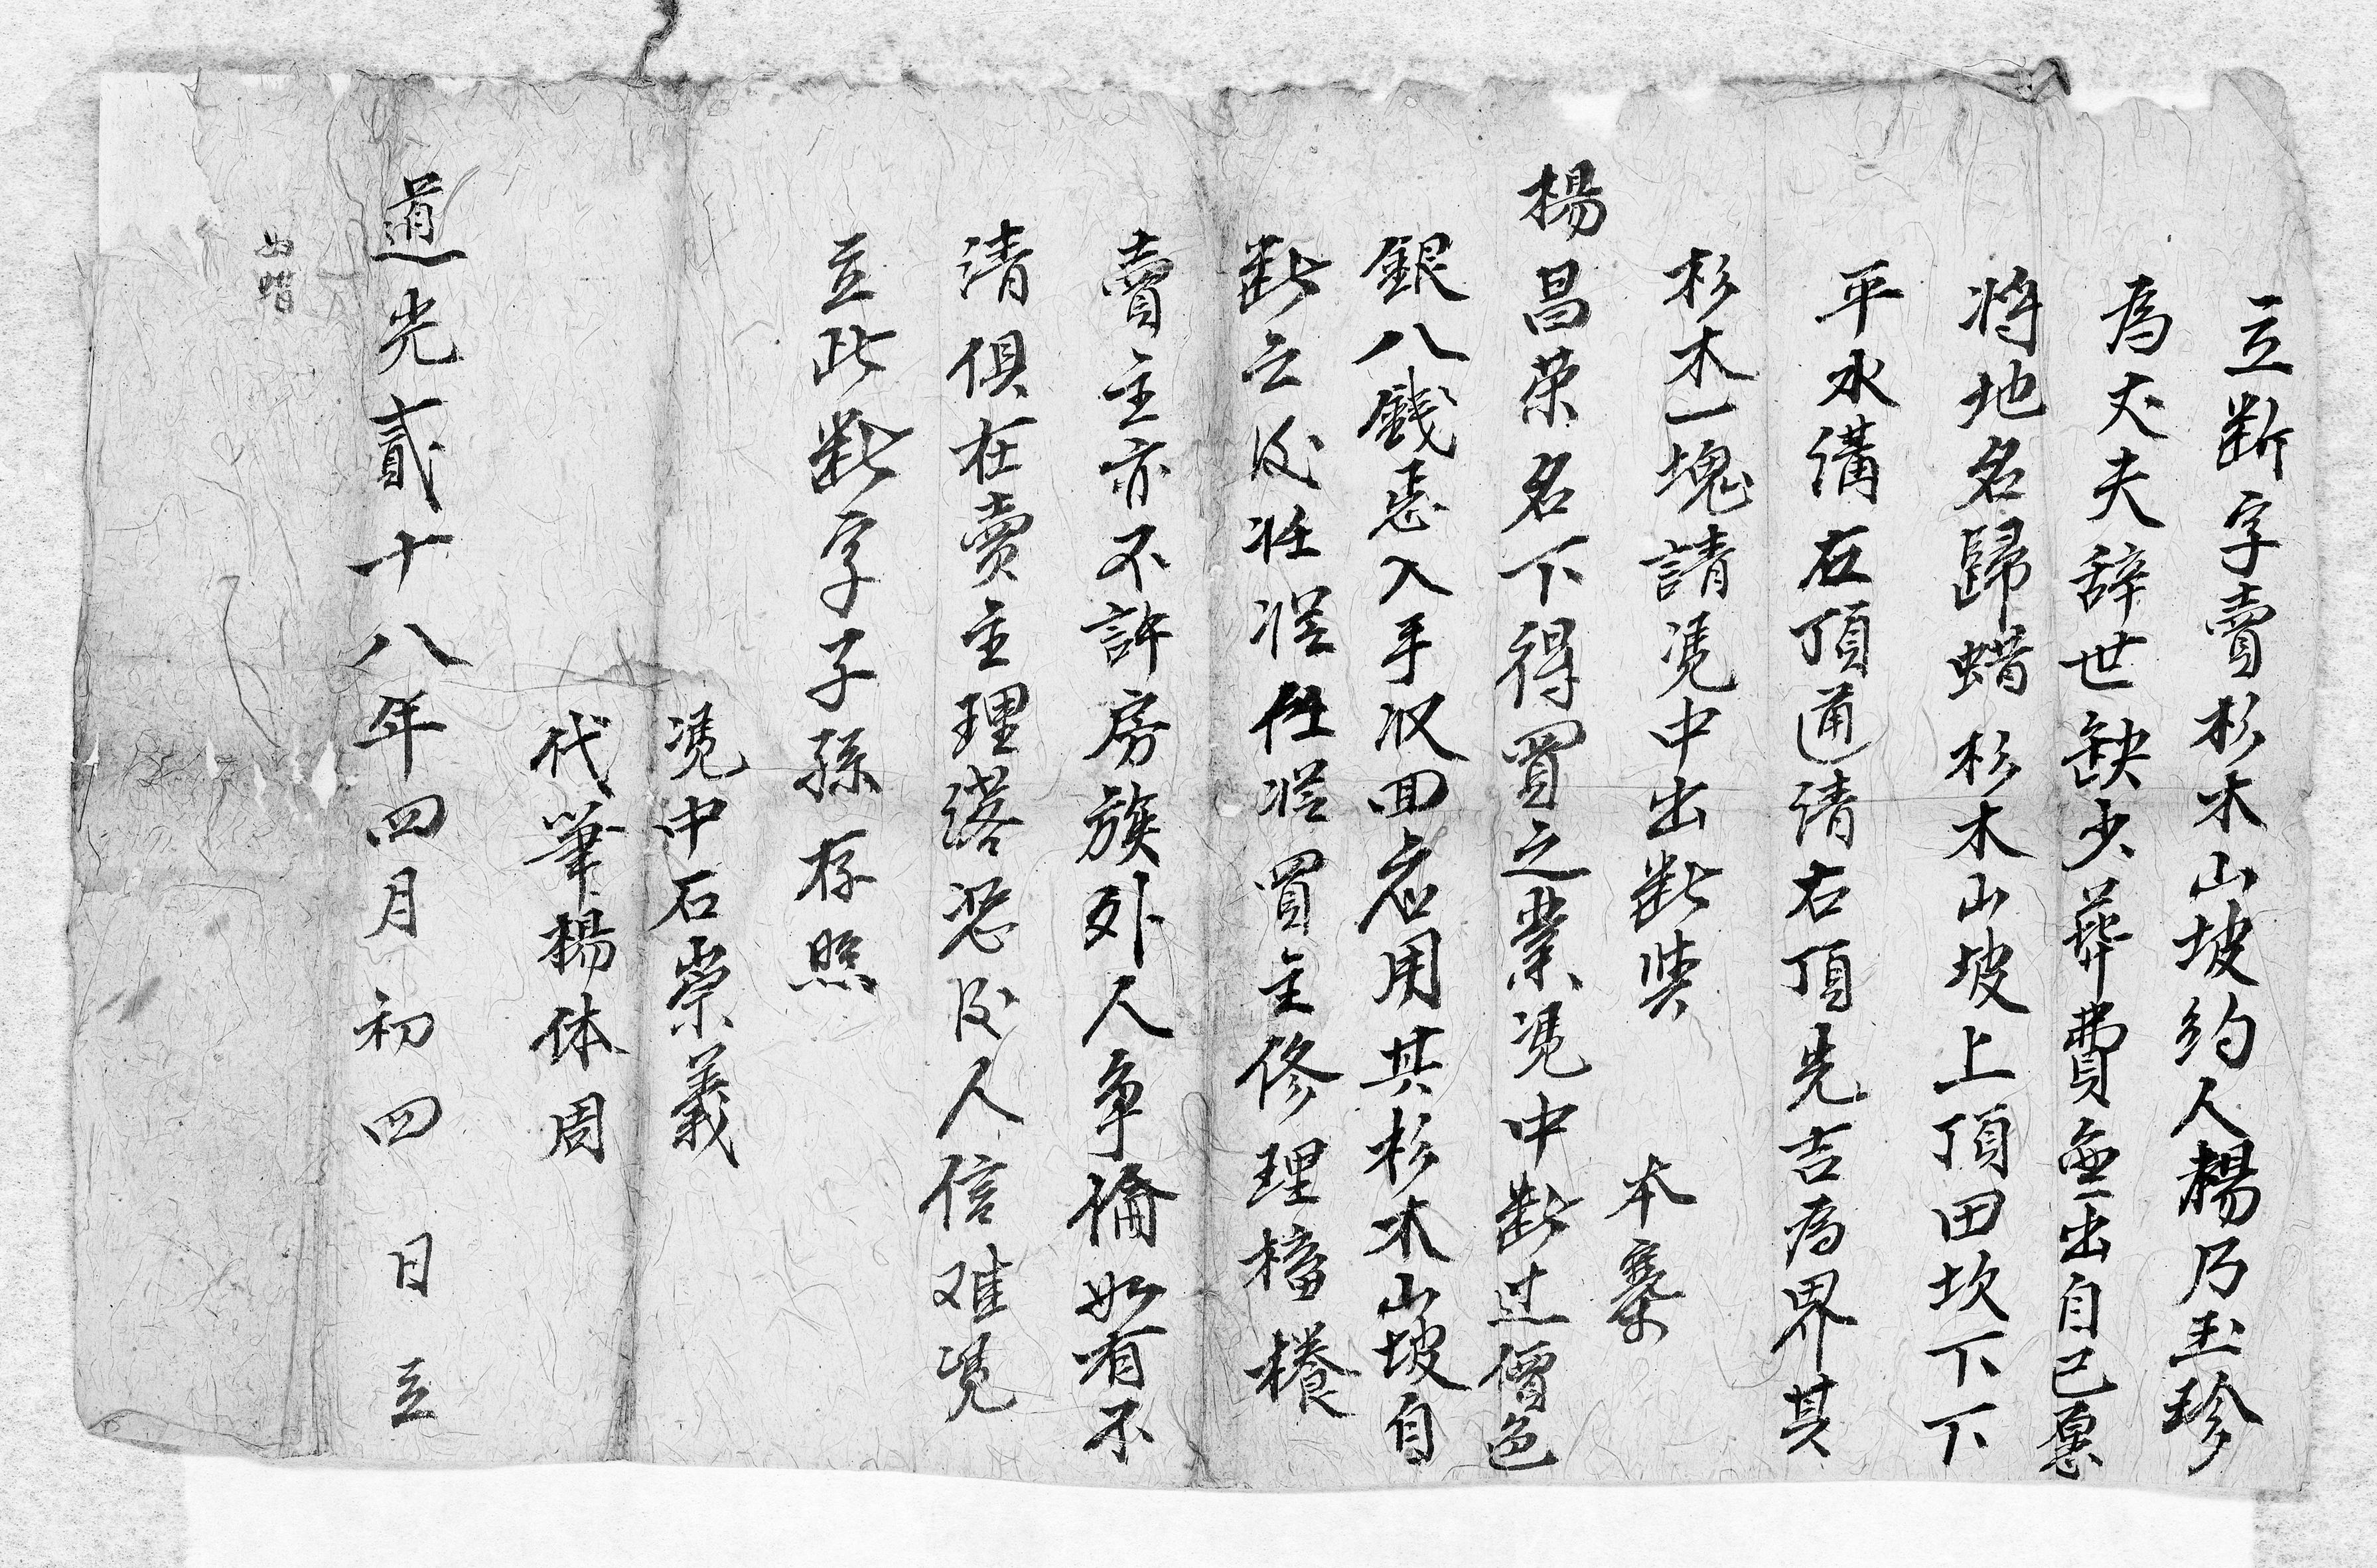 立断字賣杉木山坡約人楊乃玉珍
為丈夫辞世缺少葬費無出自己愿
将地名歸蜡杉木山坡上頂田坎下下
平水溝左頂通清右頂先吉為界其
杉木一塊請凴中出断與　　本寨
楊昌荣名下得買之業凴中断过價色
銀八錢悉入手収回应用其杉木山坡自
断之後任從任從買主修理檣橏
賣主亦不許房族外人争論如有不
清俱在賣主理落恐後人信难凴
立此断字子孫存照
凴中石崇義
代筆楊体周
道光貳十八年四月初四　日　立
蜡